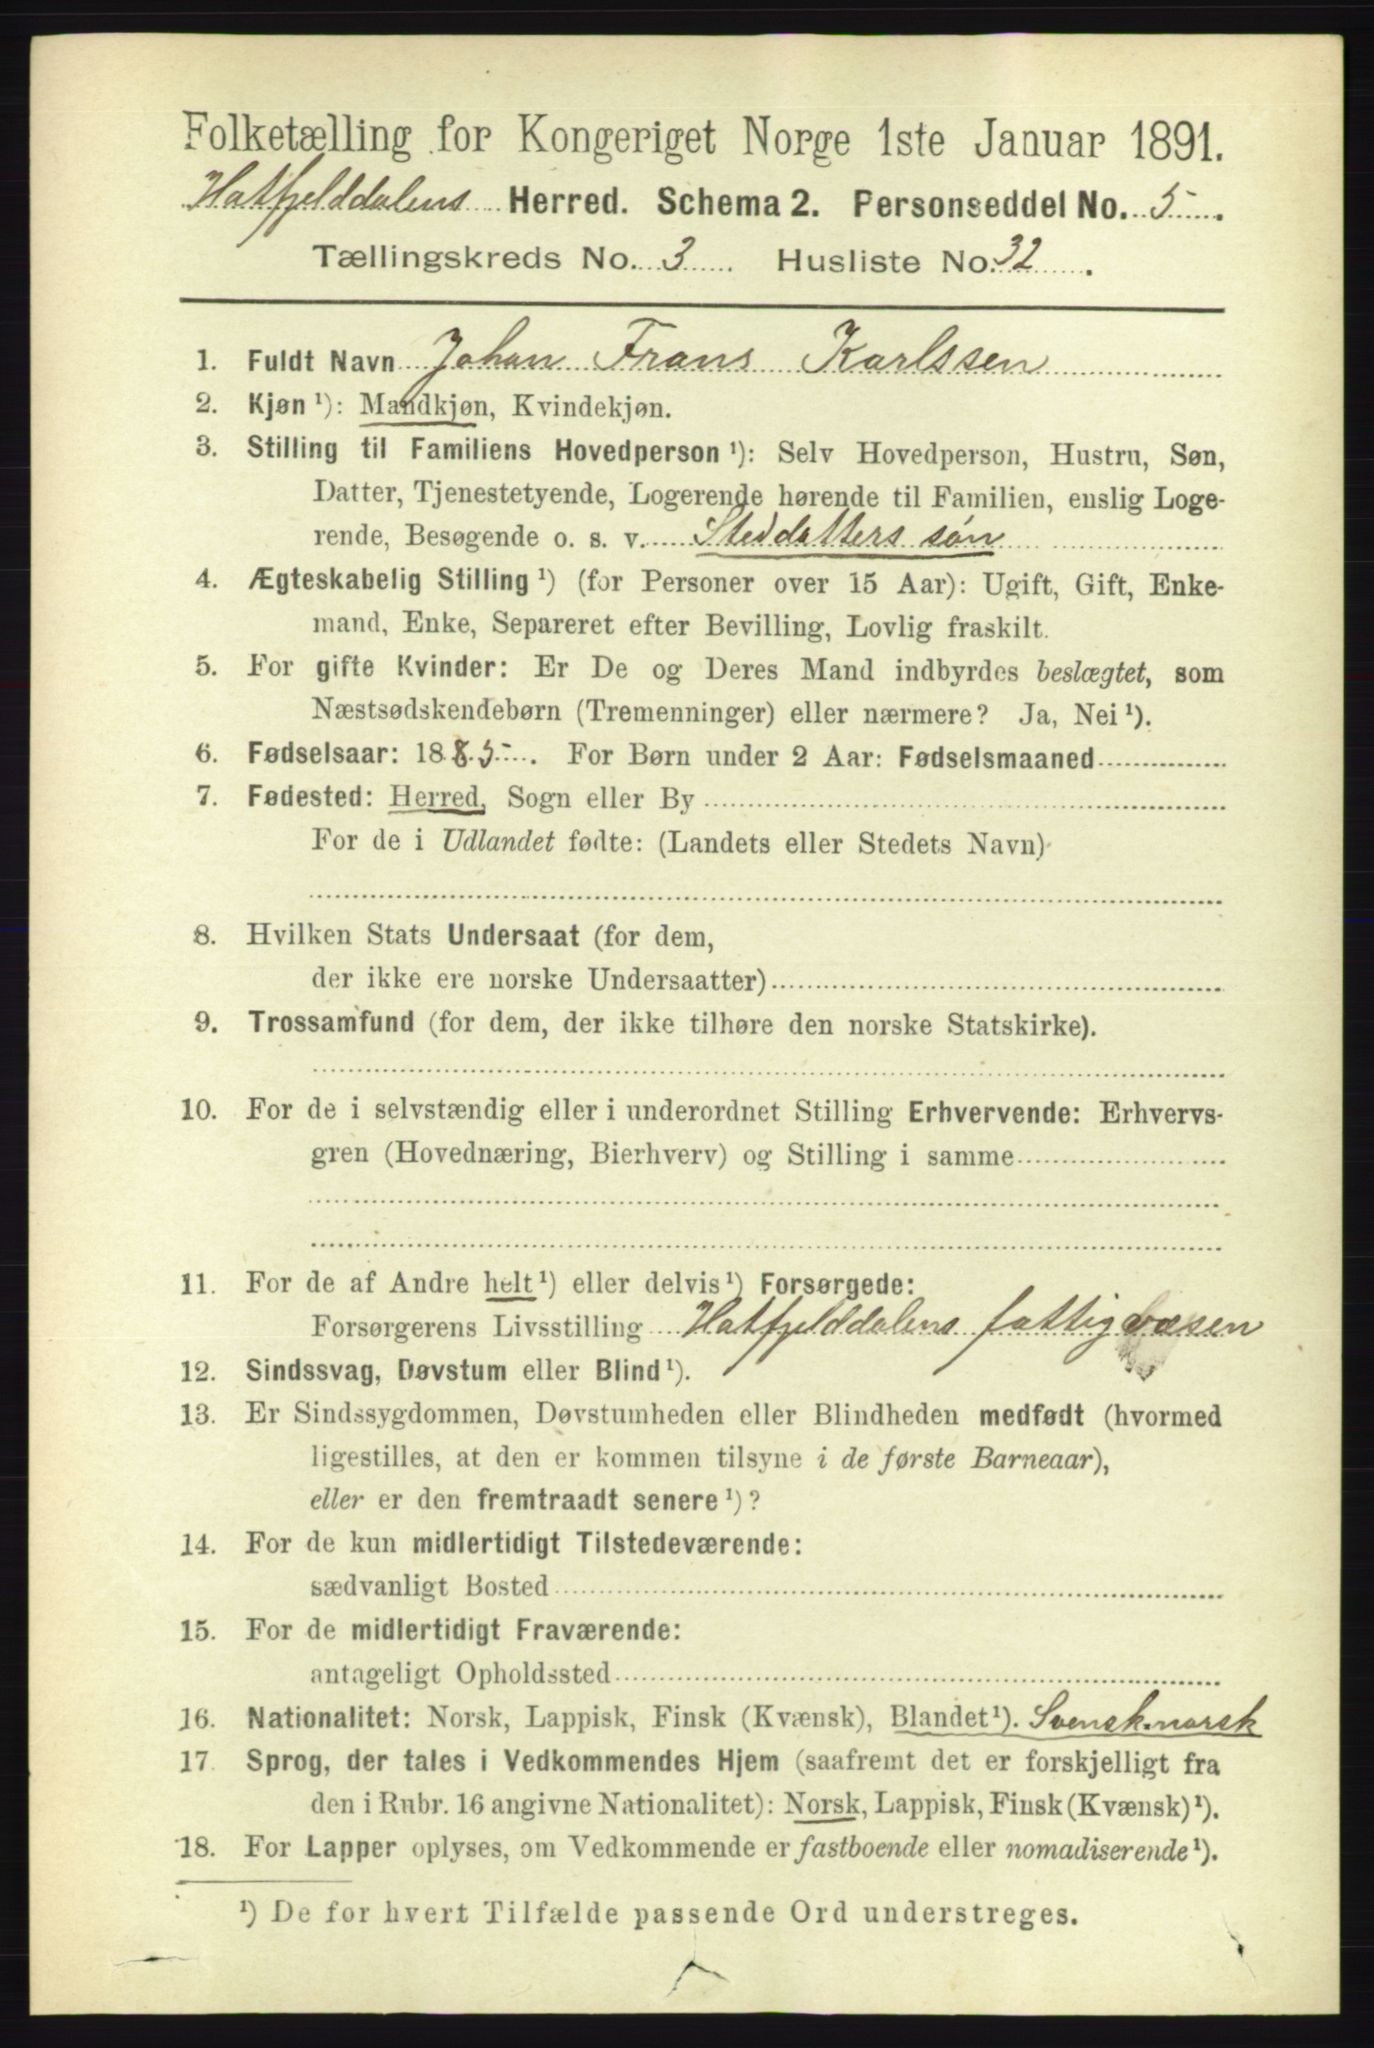 Folketælling for Kongeriget Norge 1ste Januar 1891.
Hatfjelddalens Herred. Schema 2. Personseddel No. 5
Tællingskreds No. 3 Husliste No. 32
1. Fuldt Navn Johan Frans Karlssen
2. Kjøn ¹): Mandkjøn, Kvindekjøn.
3. Stilling til Familiens Hovedperson ¹): Selv Hovedperson, Hustru, Søn,
Datter, Tjenestetyende, Logerende hørende til Familien, enslig Loge-
rende, Besøgende o. s. v. Steddatters søn
4. Ægteskabelig Stilling ¹) (for Personer over 15 Aar): Ugift, Gift, Enke-
mand, Enke, Separeret efter Bevilling, Lovlig fraskilt.
5. For gifte Kvinder: Er De og Deres Mand indbyrdes beslægtet, som
Næstsødskendebørn (Tremenninger) eller nærmere? Ja, Nei ¹).
6. Fødselsaar: 1885. For Børn under 2 Aar: Fødselsmaaned
7. Fødested: Herred, Sogn eller By
For de i Udlandet fødte: (Landets eller Stedets Navn)
8. Hvilken Stats Undersaat (for dem,
der ikke ere norske Undersaatter)
9. Trossamfund (for dem, der ikke tilhøre den norske Statskirke).
10. For de i selvstændig eller i underordnet Stilling Erhvervende: Erhvervs-
gren (Hovednæring, Bierhverv) og Stilling i samme
11. For de af Andre helt ¹) eller delvis ¹) Forsørgede:
Forsørgerens Livsstilling Hatfjelddalens fattigvæsen
12. Sindssvag, Døvstum eller Blind ¹).
13. Er Sindssygdommen, Døvstumheden eller Blindheden medfødt (hvormed
ligestilles, at den er kommen tilsyne i de første Barneaar),
eller er den fremtraadt senere ¹)?
14. For de kun midlertidigt Tilstedeværende:
sædvanligt Bosted
15. For de midlertidigt Fraværende:
antageligt Opholdssted
16. Nationalitet: Norsk, Lappisk, Finsk (Kvænsk), Blandet ¹). Svensk-norsk
17. Sprog, der tales i Vedkommendes Hjem (saafremt det er forskjelligt fra
den i Rubr. 16 angivne Nationalitet): Norsk, Lappisk, Finsk (Kvænsk) ¹).
18. For Lapper oplyses, om Vedkommende er fastboende eller nomadiserende ¹).
¹) De for hvert Tilfælde passende Ord understreges.